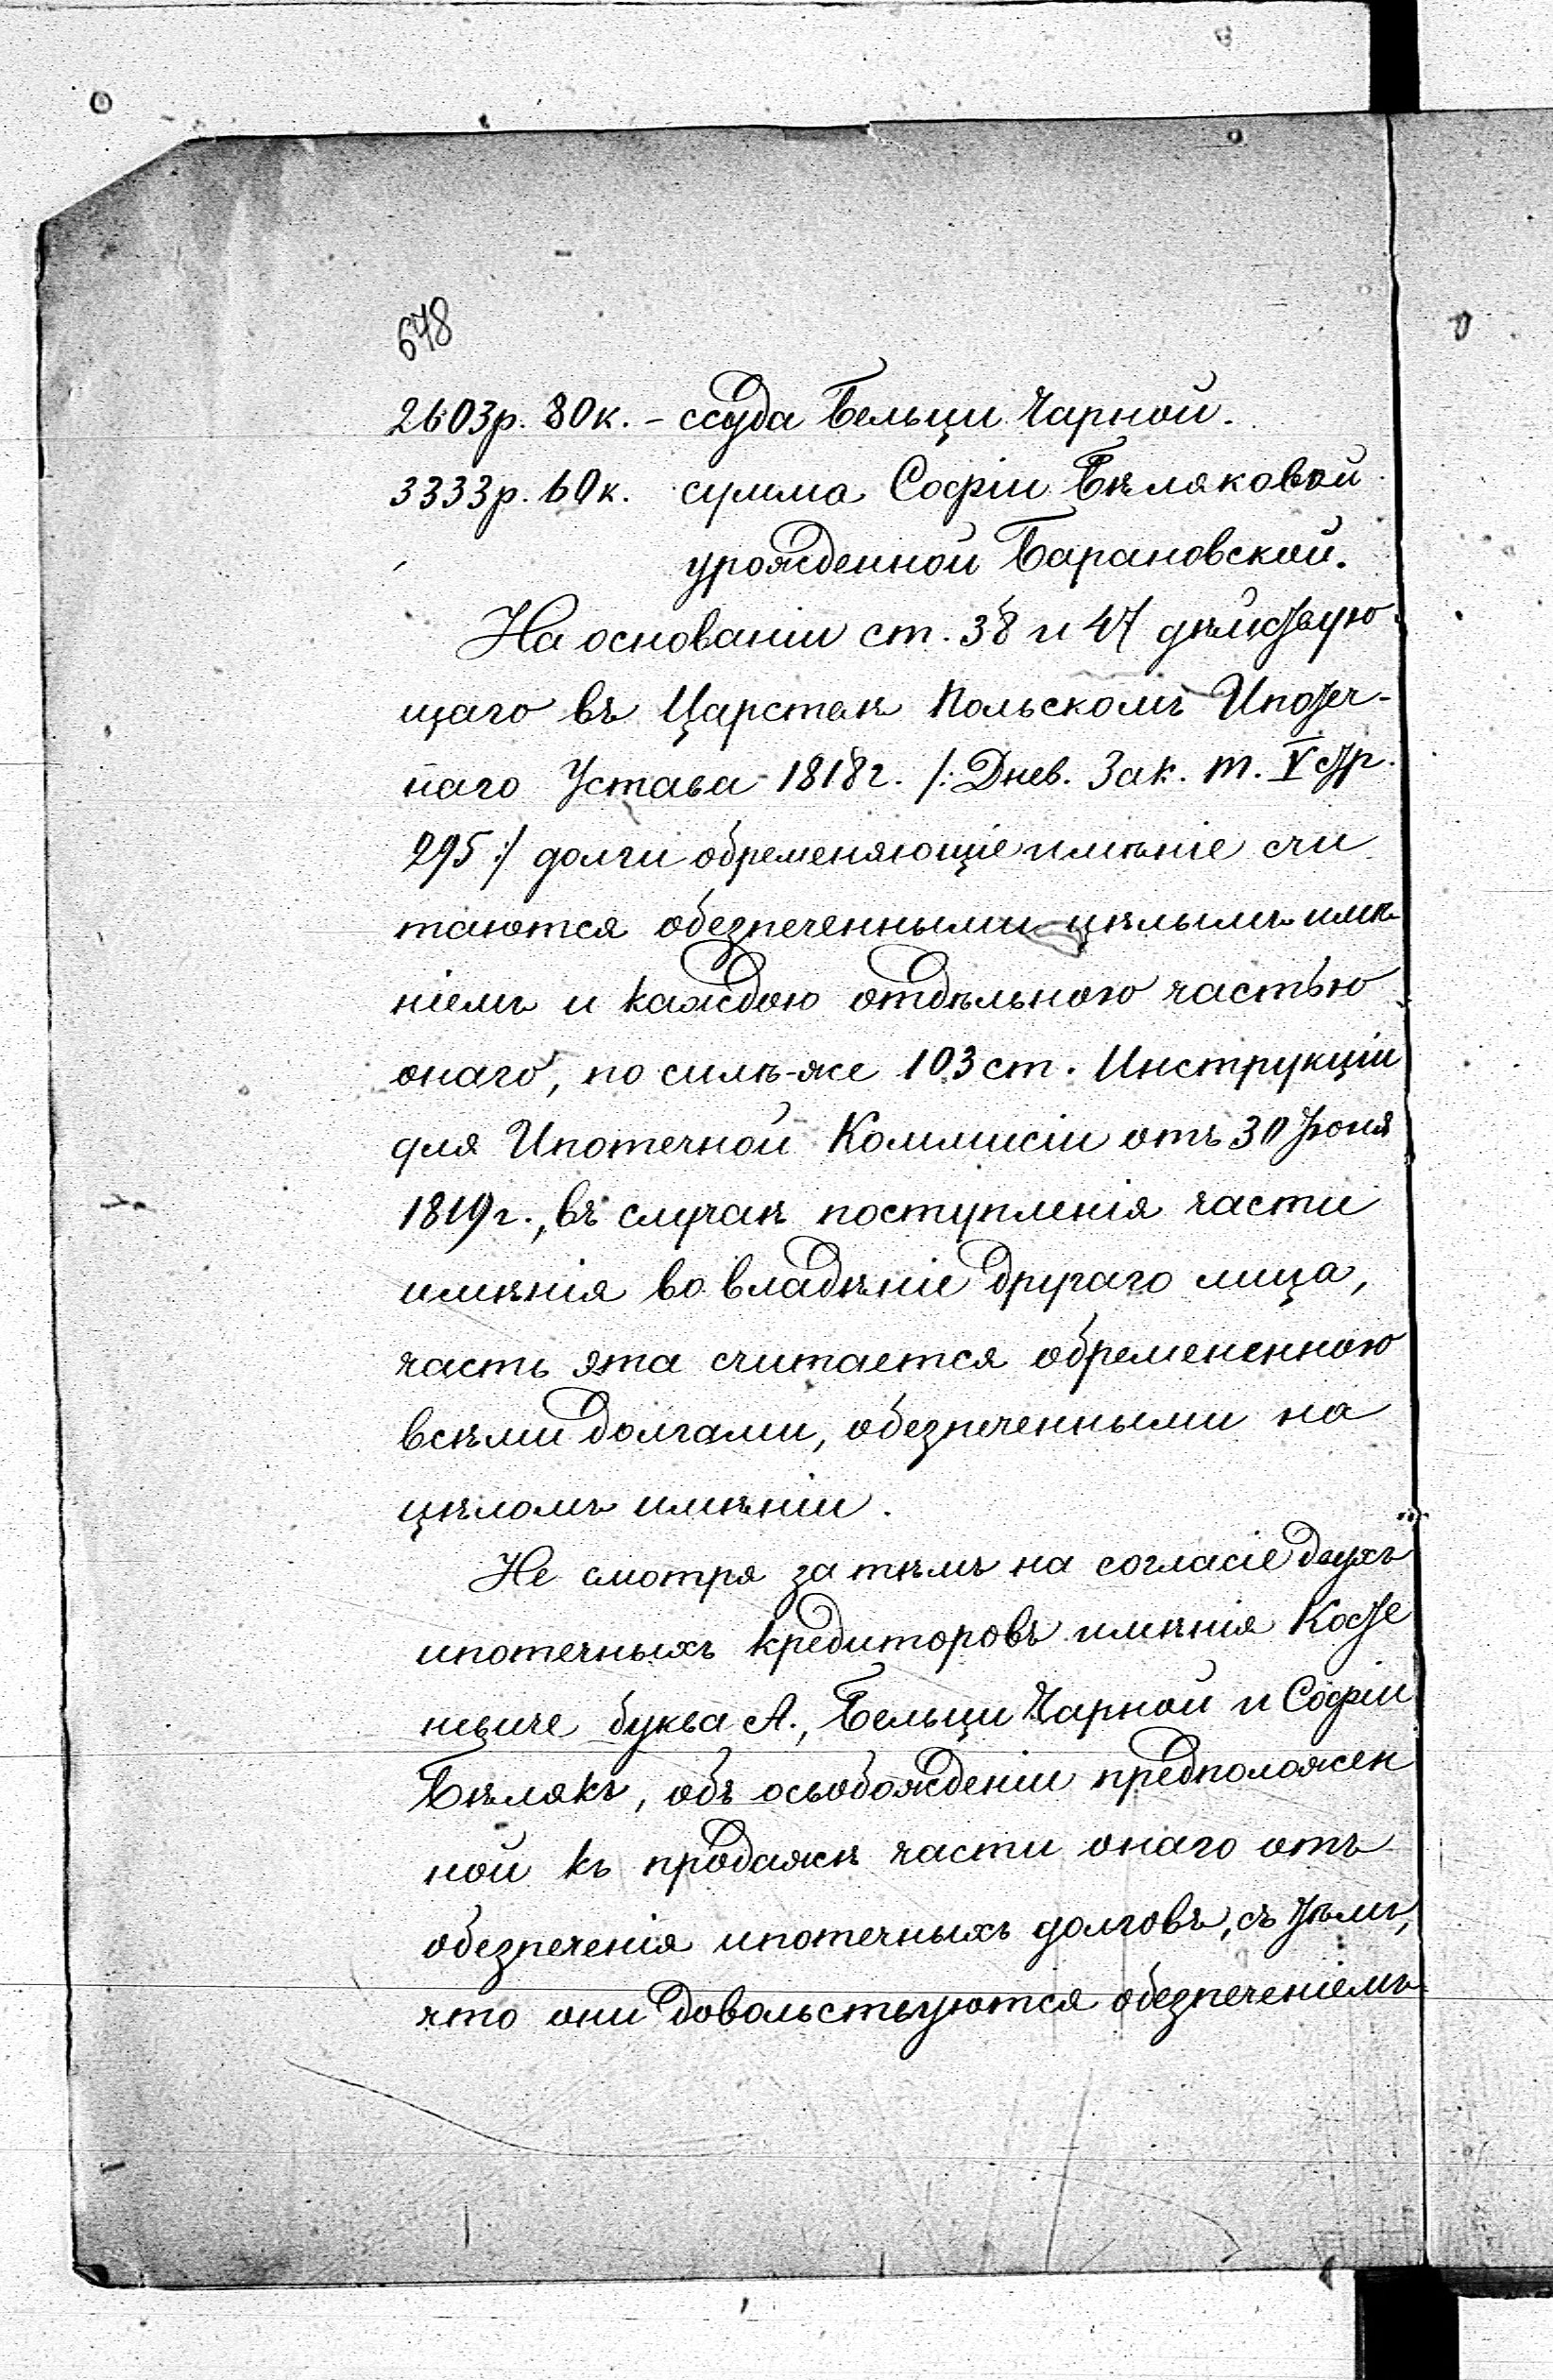 678
2603р. 80к. - ссуда Бельци Чарной.
3333р. 60к. сумма Софіи Бѣляковой
урожденной Барановской.
На основаніи ст. 38 и 47 дѣйствую-
щаго въ Царствѣ Польскомъ Ипотеч-
наго Устава 1818г. /: Днев. Зак. т. V стр.
295 :/ долги обременяющіе имѣніе счи
таются обезпеченными цѣлымъ имѣ
ніемъ и каждою отдѣльною частью
онаго, по силѣ-же 103 ст. Инструкціи
для Ипотечной Коммисіи отъ 30 Іюня
1819г., въ случаѣ поступленія части
имѣнія во владѣніе другаго лица,
часть эта считается обремененною
всѣми долгами, обезпеченными на
цѣломъ имѣніи.
Не смотря за тѣмъ на согласіе двухъ
ипотечныхъ кредиторовъ имѣнія Косте
невиче буква А., Бельци Чарной и Софіи
Бѣлякъ, объ освобожденіи предположен
ной къ продажѣ части онаго отъ
обезпеченія ипотечныхъ долговъ, съ тѣмъ,
что они довольствуются обезпеченіемъ